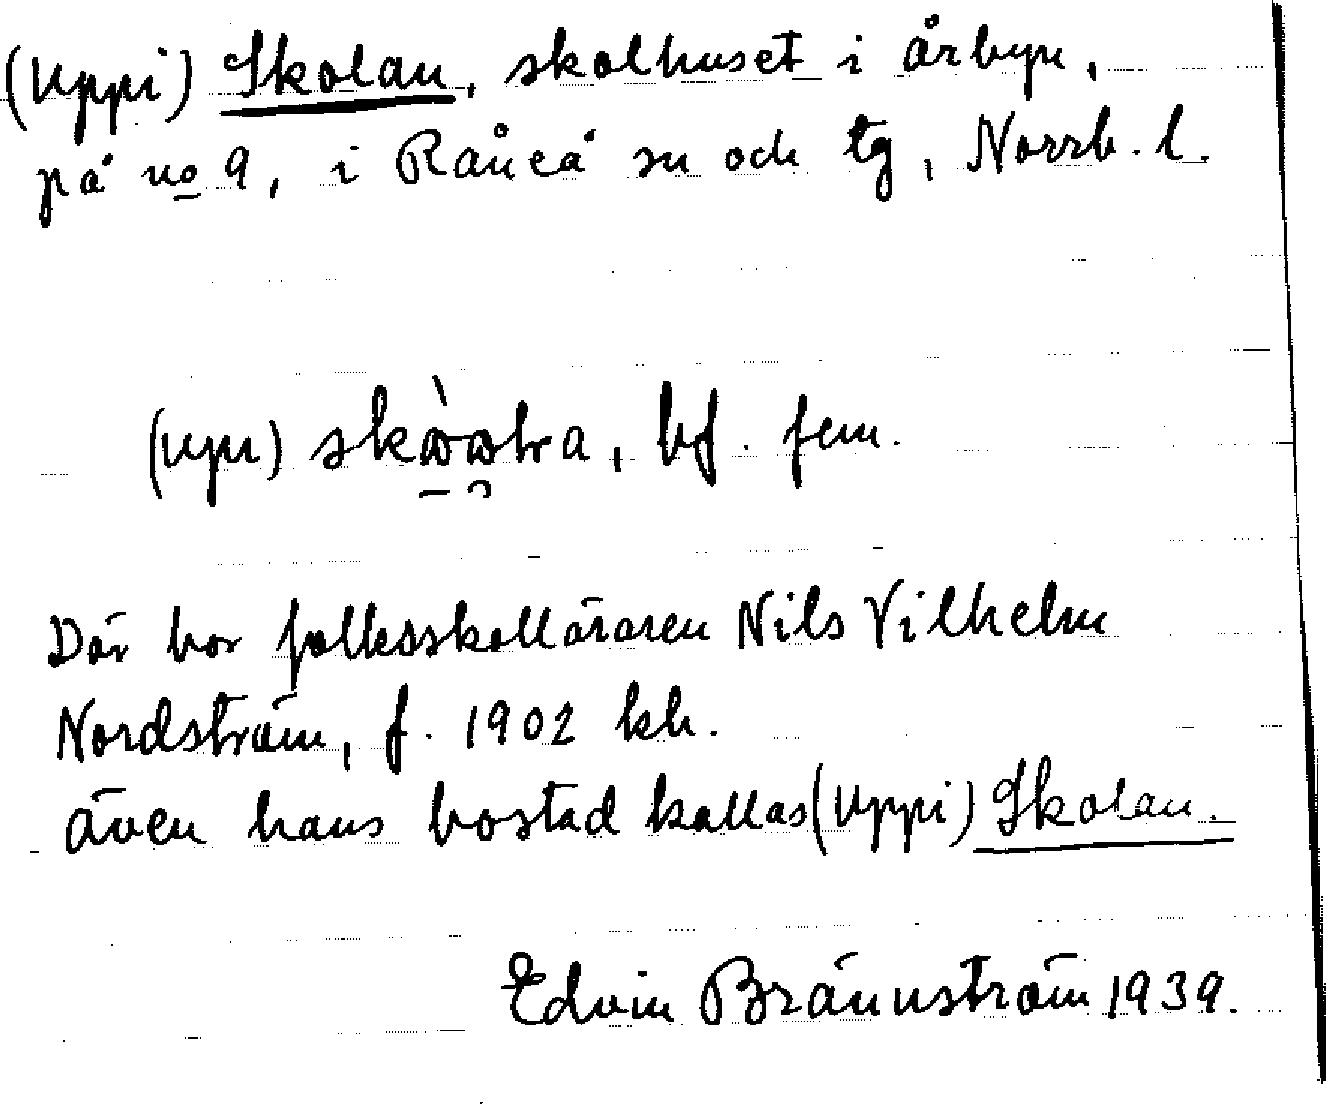 (Uppi) Skolan, skolhuset i Årbyn,
på no 9, i Råneå sn och tg, Norrb. l.
(upi)
, bf. fem.
Där bor folkskolläraren Nils Vilhelm
Nordström, f. 1902 kh.
Även hans bostad kallas (Uppi) Skolan.
Edvin Brännström 1939.